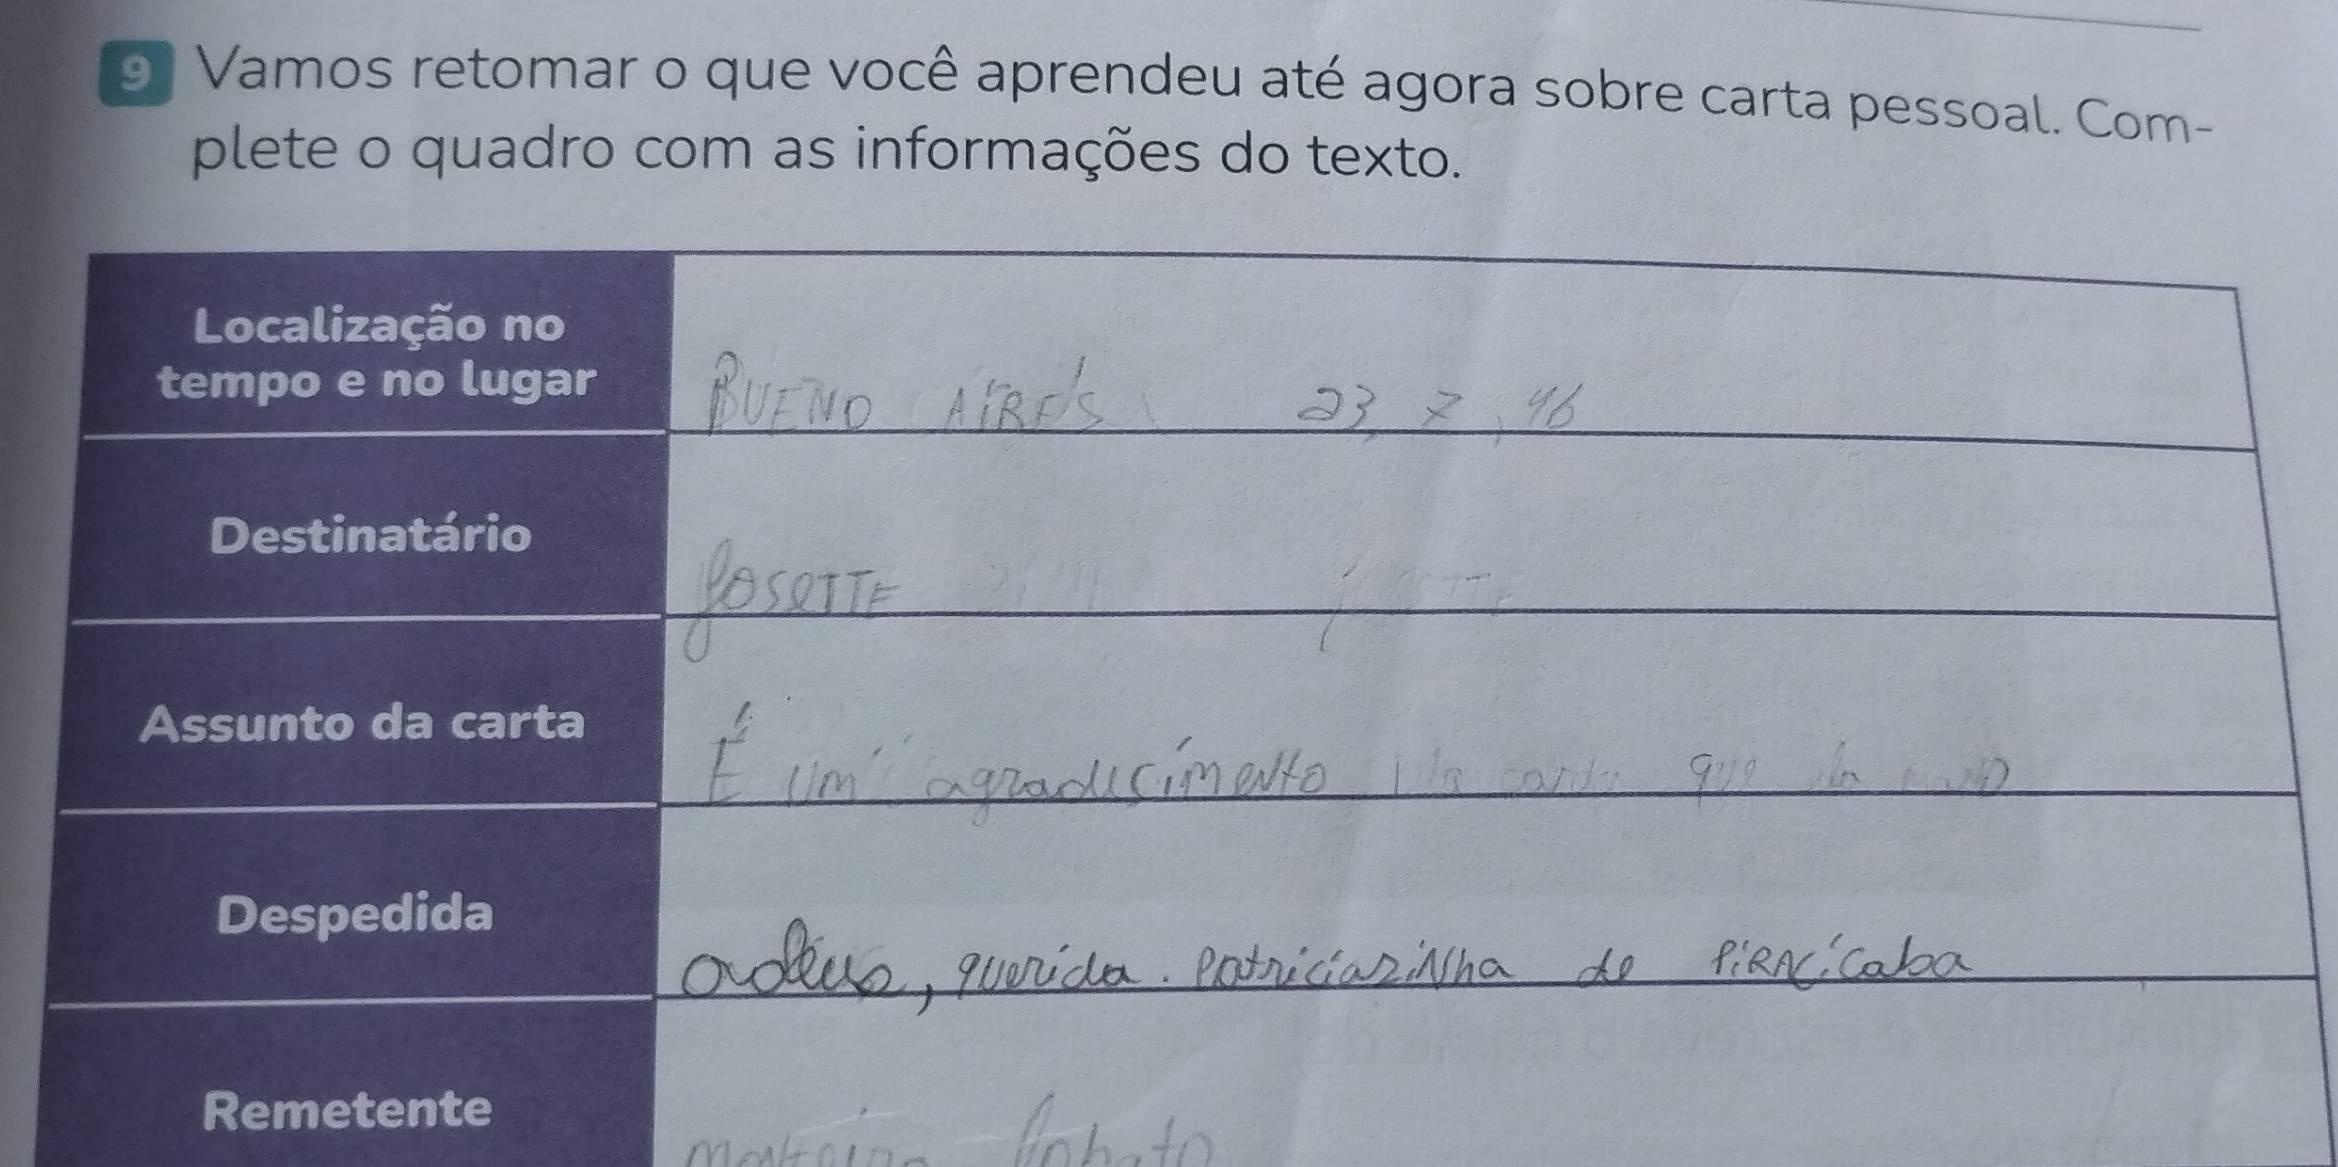 9 Vamos retomar o que você aprendeu até agora sobre carta pessoal. Com-
plete o quadro com as informações do texto.
Localização no
tempo e no lugar
BUENO AIRES 23, 7, 46
Destinatário
JOSETTE
Assunto da carta
É um agradecimento que
Despedida
adeus, querida. Patriciazinha de PiRACicaba
Remetente